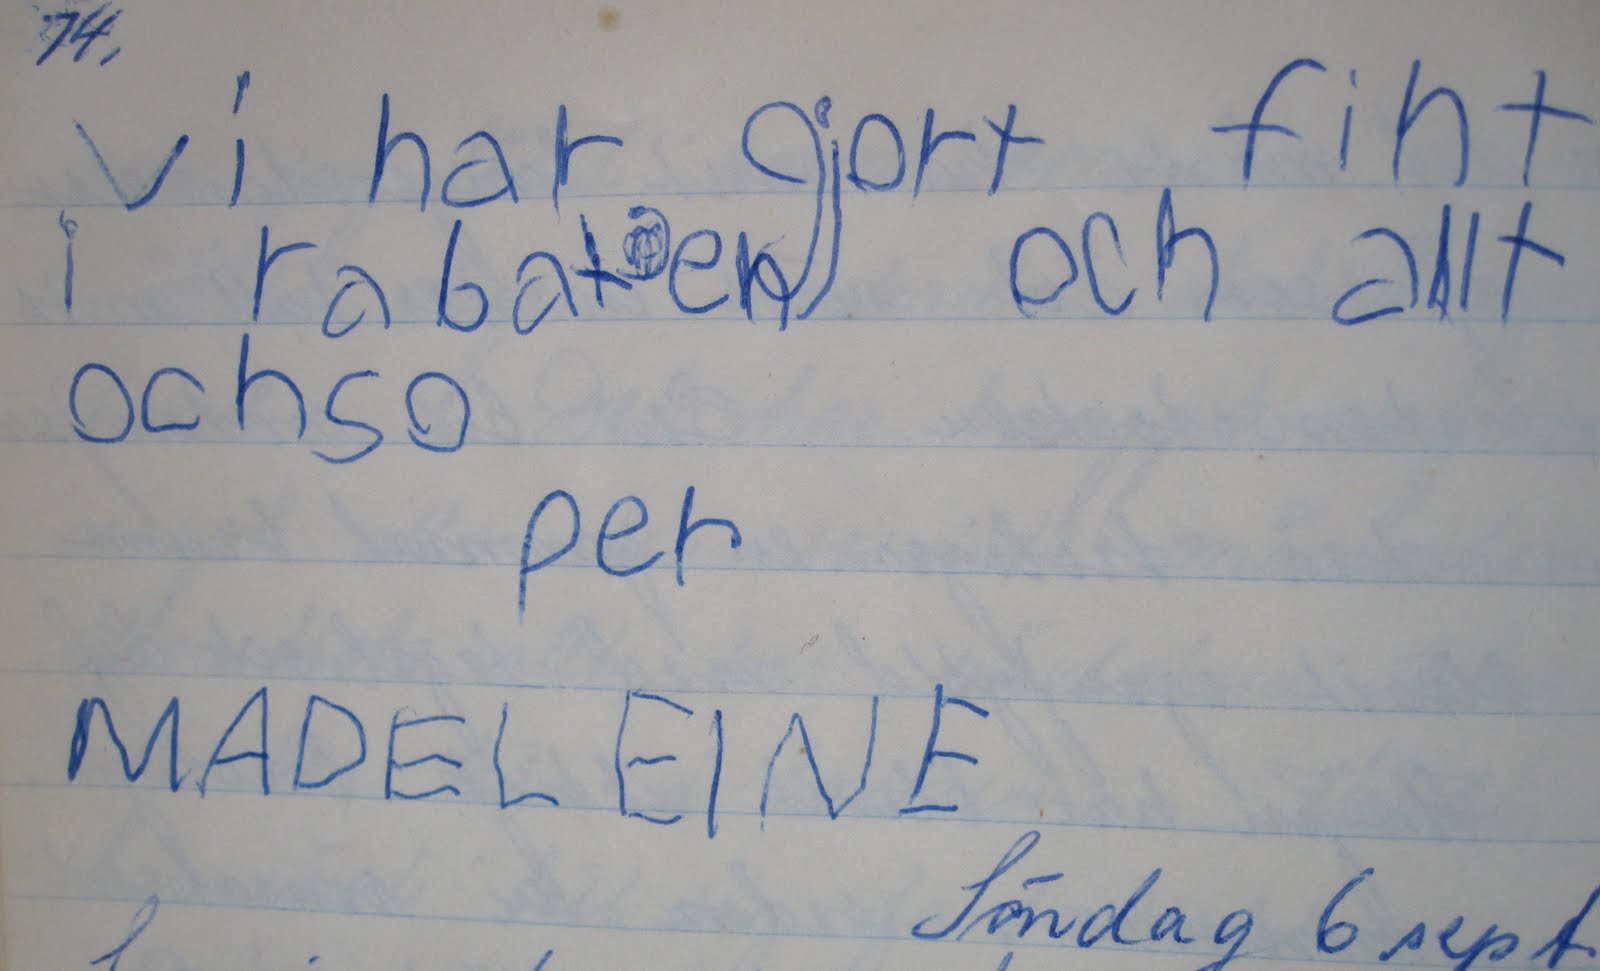 74.
vi har gjort fint
i rabaten och allt
ochso
per
MADELEINE
Söndag 6 sept